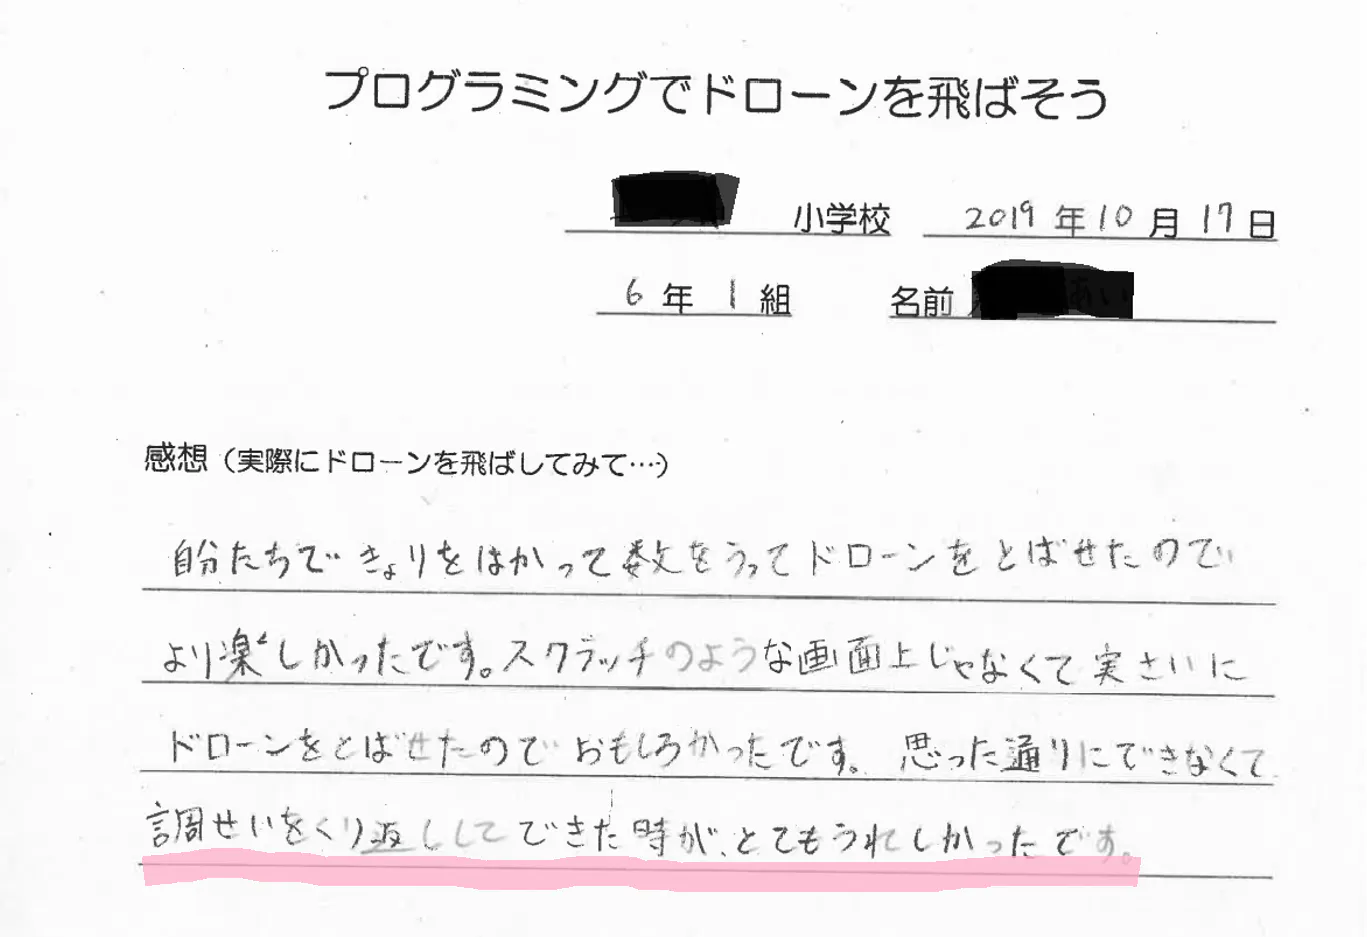 プログラミングでドローンを飛ばそう
小学校 2019年10月17日
6年 1組 名前
感想（実際にドローンを飛ばしてみて…）
自分たちできょりをはかって数をうってドローンをとばせたので
より楽しかったです。スクラッチのような画面上じゃなくて実さいに
ドローンをとばせたのでおもしろかったです。思った通りにできなくて
調せいをくり返ししてできた時が、とてもうれしかったです。